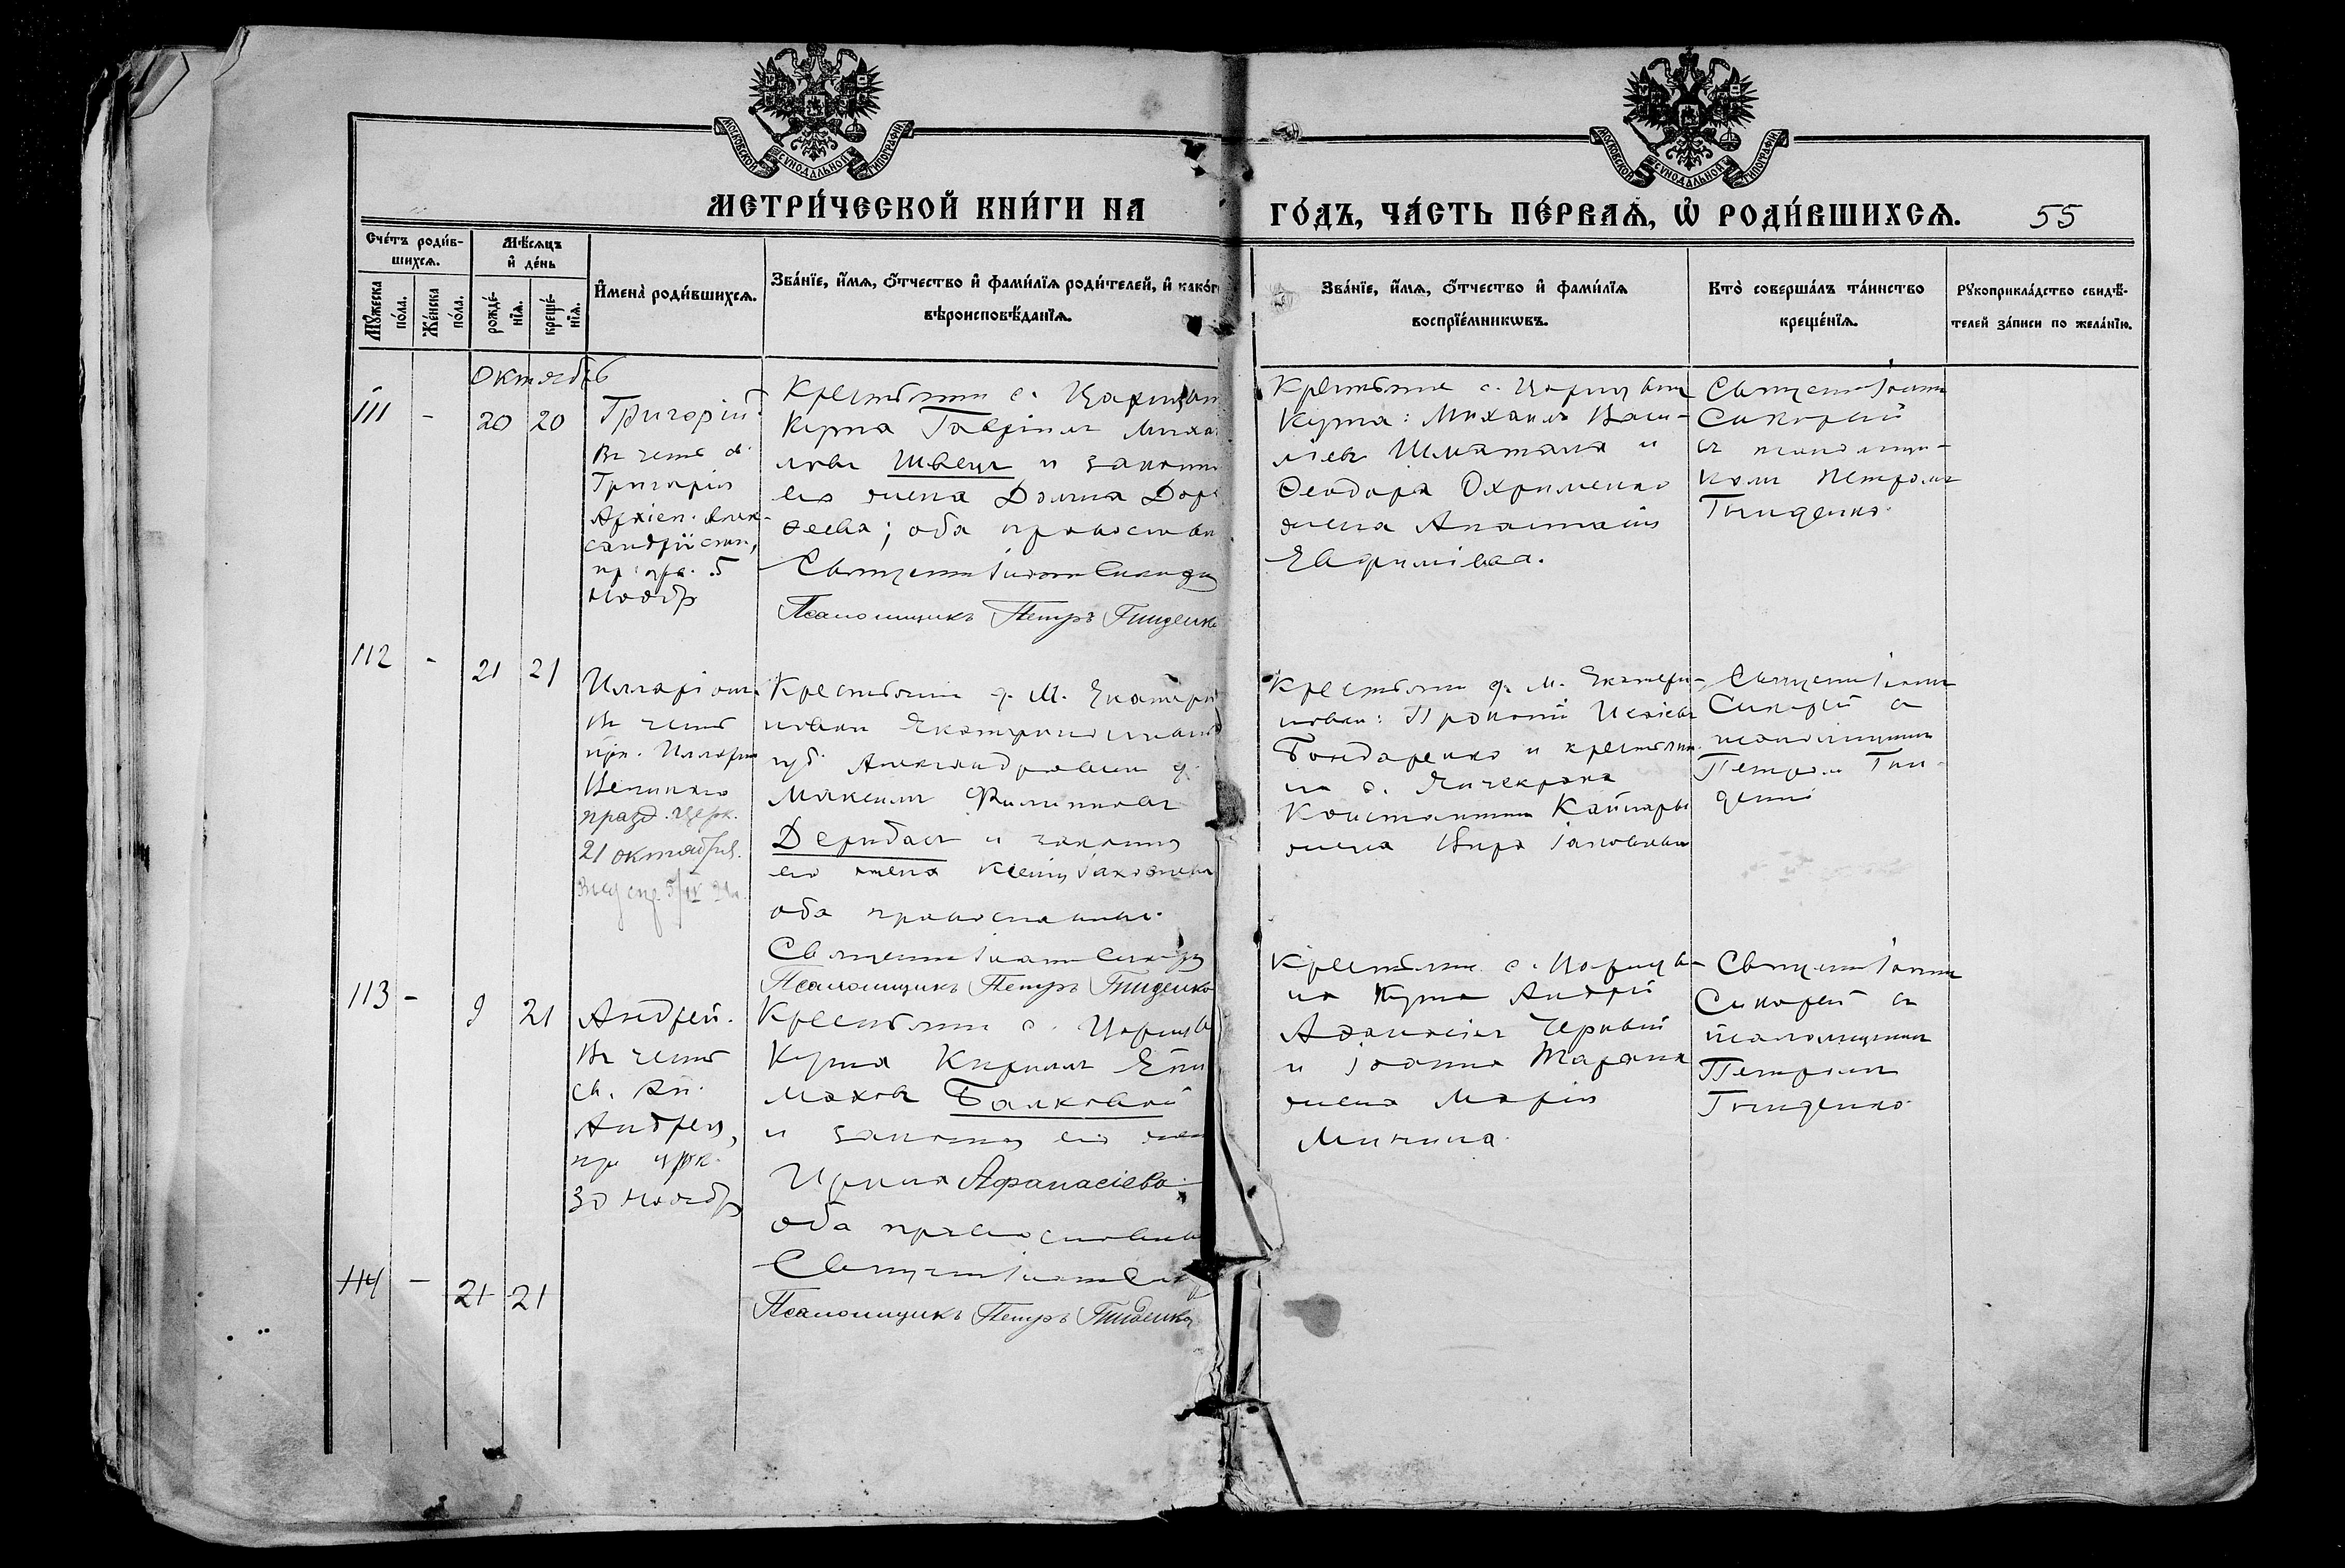 МОСКОВСКОЙ СѴНОДАЛЬНОЙ ТИПОГРАФІИ
МОСКОВСКОЙ СѴНОДАЛЬНОЙ ТИПОГРАФІИ
МЕТРИ́ЧЕСКОЙ КНИ́ГИ НА ГО́ДЪ, ЧА́СТЬ ПЕ́РВАѦ, Ѡ҆ РОДИ́ВШИХСѦ. 55
Счє́тъ роди́в-
шихсѧ.
Мꙋ́жєска по́ла.
Жє́нска по́ла.
Мѣ́сѧцъ
и҆ дє́нь
рождє́-
нїѧ.
крєщє́-
нїѧ.
И҆мєна̀ роди́вшихсѧ.
Зва́нїє, и҆́мѧ, ѻ҆́тчєство и҆ фами́лїѧ роди́тєлєй, и҆ како́г
вѣроисповѣ́данїѧ.
Зва́нїє, и҆́мѧ, ѻ҆́тчєство и҆ фами́лїѧ
воспрїє́мникѡвъ.
Кто̀ совєрша́лъ та́инство
крєщє́нїѧ.
Рꙋкоприкла́дство свидѣ́-
тєлєй за́писи по жєла́нїю.
Октябрь
111 - 20 20
Григорій.
Въ честь св.
Григорія
Архіеп. Алек-
сандрійскаго,
5
Ноябр
Крестьянин с.
Кута Гавріилъ Миха
ловъ Швець и законная
его жена Домна Доро
ѳеева; оба православн
Священникъ Іоаннъ
Псаломщикъ Петръ Гниденко
Крестьяне с.
Кута: Михаилъ Васи-
ліевъ Шматала и
Ѳеодора Охрименко
жена Анастасія
Евфиміева.
Священ. Іоаннъ
Сикорскій
съ псаломщи-
комъ Петромъ
Гниденко.
112 - 21 21
Илларіонъ.
Въ честь
пр. Илларіона
Великаго
празд. церк.
21 октября.
Крестьянинъ д. М. Екатери
новки Екатеринославской
губ. Александровскаго у.
Максимъ Филипповъ
Дерибасъ и законная
его жена Ксенія Іаковлева
оба православные.
Священникъ Іоаннъ
Псаломщикъ Петръ Гниденко
Крестьяне д. М. Екатери-
новки: Прокопій Исаіевъ
Бондаренко и крестьян.
на с. Янчекрака
Константина Кайнары
жена Вѣра Іаковлева
Священ. Іоаннъ
Сикорскій съ
псаломщикомъ
Петромъ Гни-
денко
113 - 9 21
Андрей.
Въ честь
св. Ап.
Андрея,
пр. церк.
30 Ноябр
Крестьянин с.
Кута Кириллъ Епи
маховъ Балковой
и законная его жена
Ирина Афанасіева.
оба православны
Священникъ Іоаннъ
Псаломщикъ Петръ Гниденко
Крестьяне с.
на Кута Андрей
Аѳанасіевъ Чернвый
и Іоанна Тарана
жена Марія
Минина.
Священ. Іоаннъ
Сикорскій съ
псаломщикомъ
Петромъ
Гниденко.
114 - 21 21